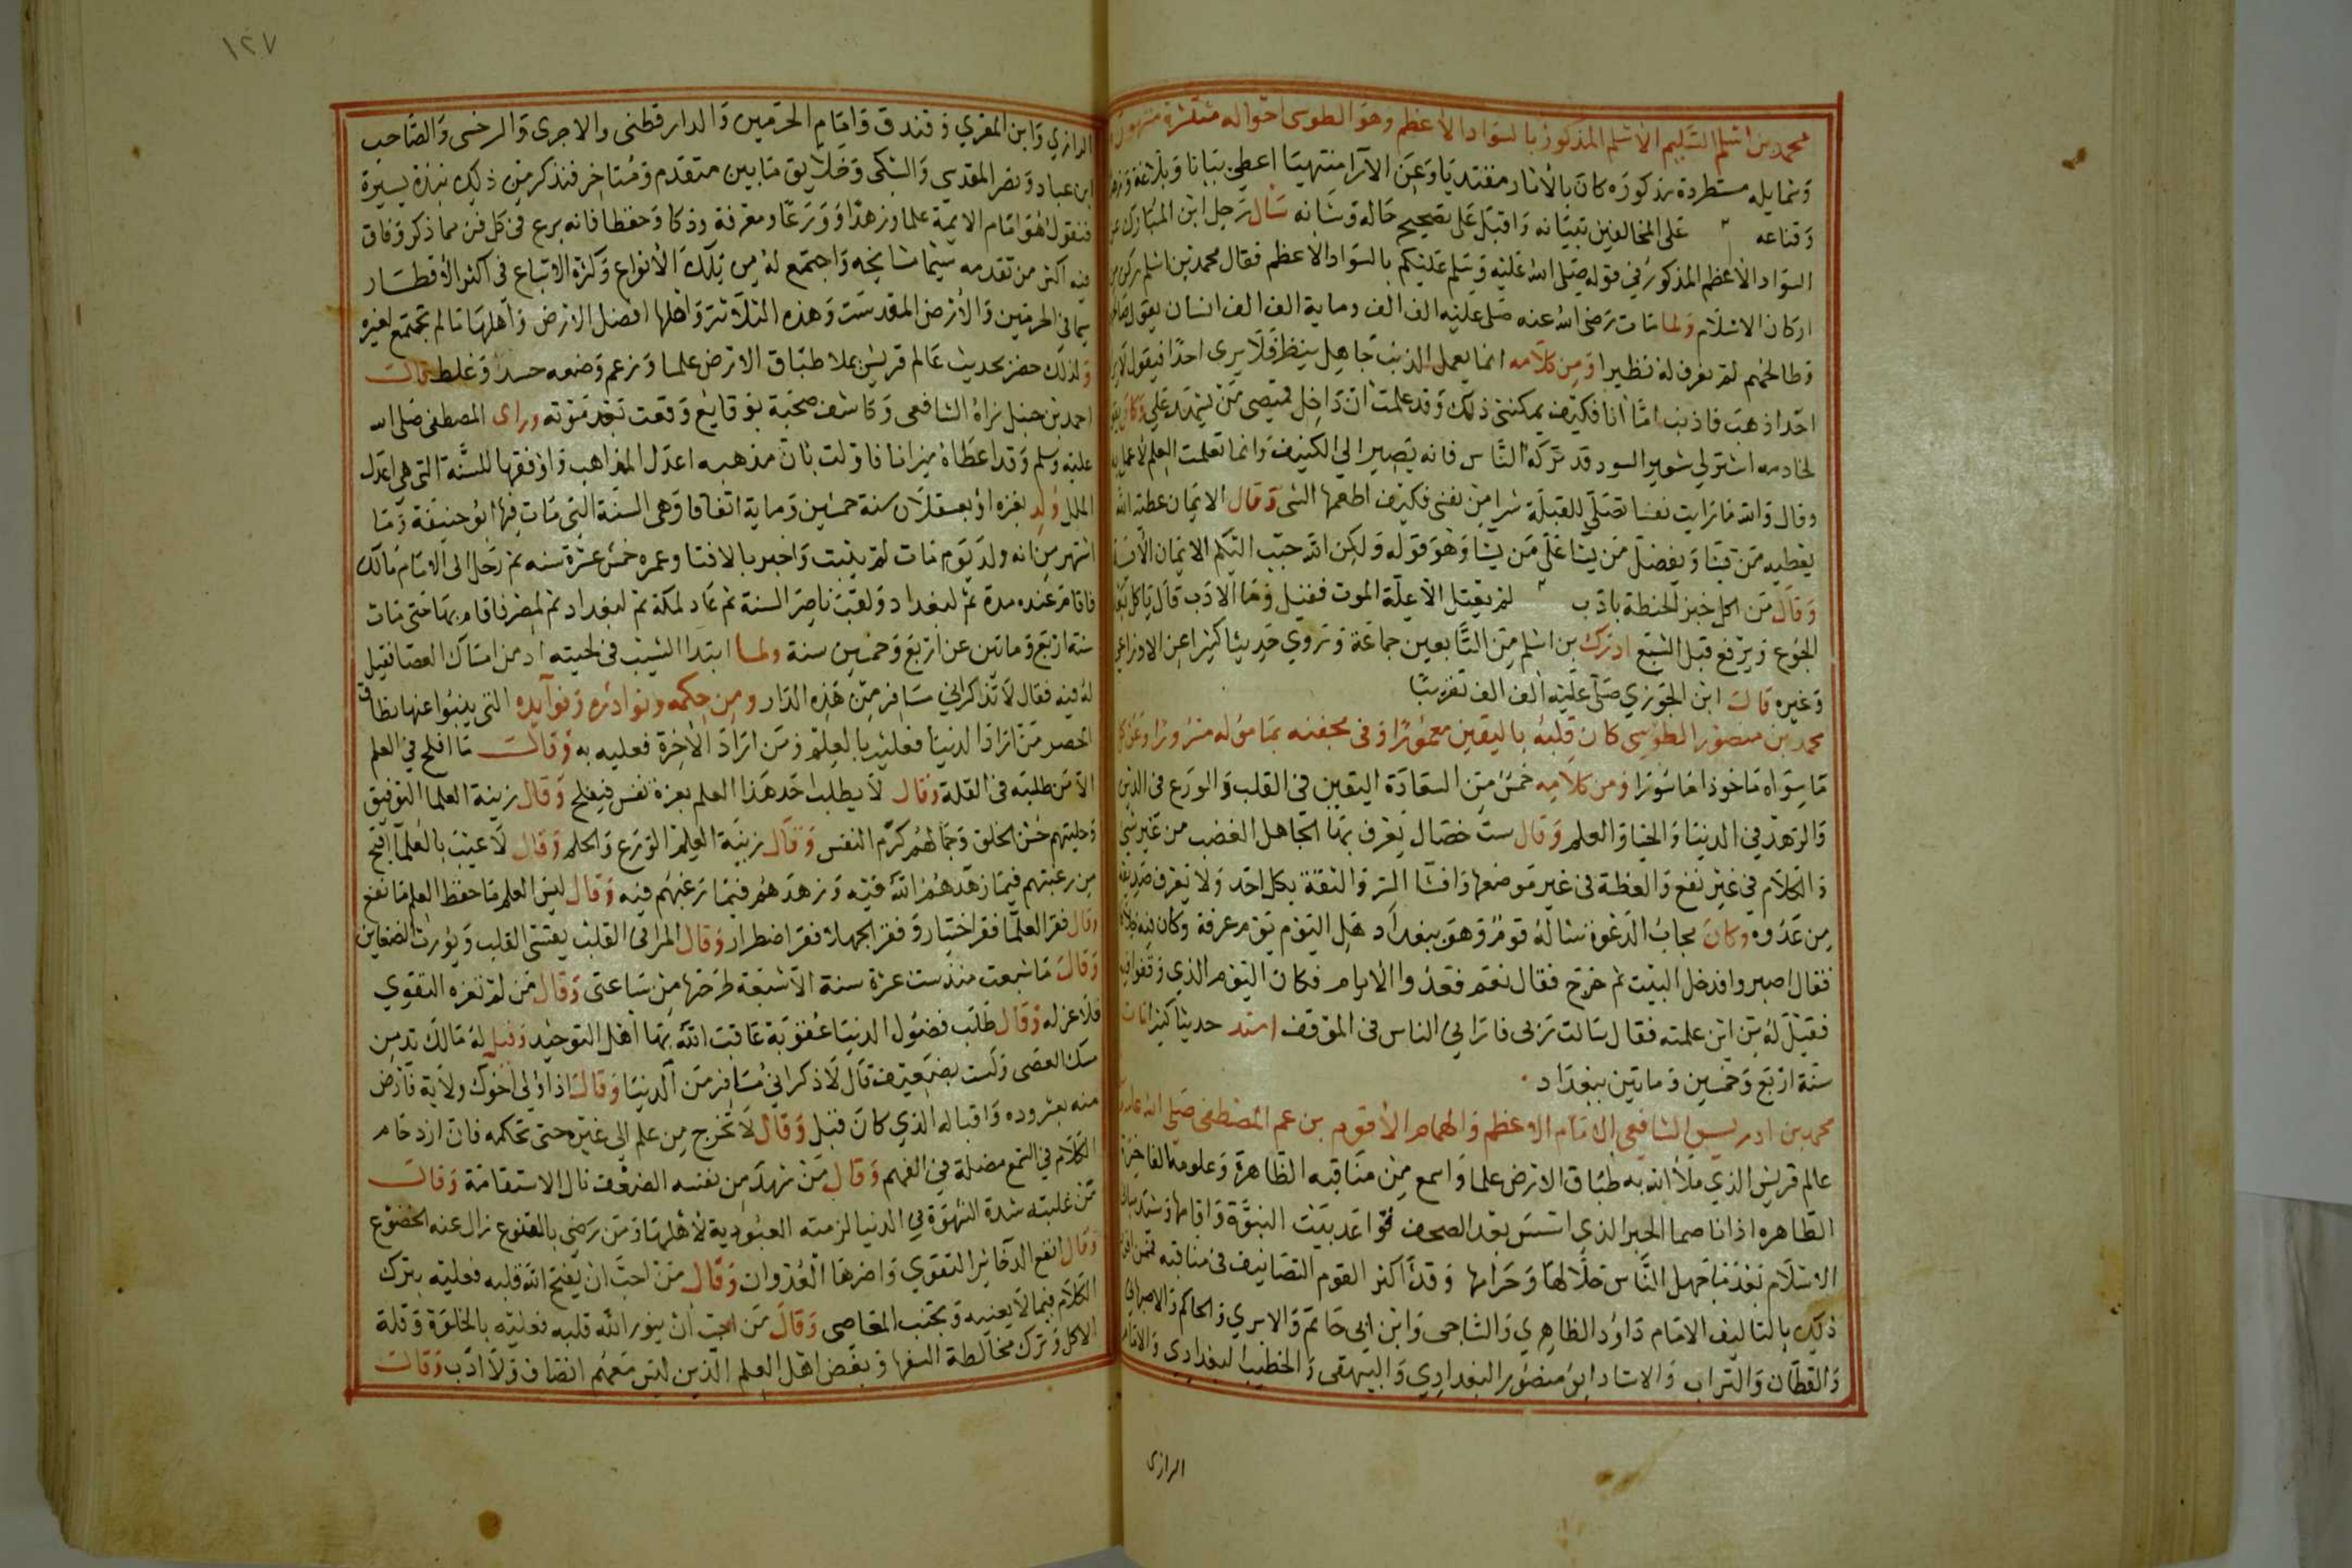 محمد بن اسلم السليم الاسلم المذكور بالسواد الأعظم وهو الطوسى احواله منتشرة مشهورة
وشمايله مسطردة مذكوره كان بالأثار مقتديا وعن الآرا منتهيا اعطى بيانا وبلاغة وزهد
وقناعه على المخالفين تبيانه واقبل على تصحيح حاله وشانه سال رجل ابن المبارك عن
السواد الأعظم المذكور في قوله صلى الله عليه وسلم عليكم بالسواد الأعظم فقال محمد بن اسلم ركن من
اركان الاسلام ولما مات رضى الله عنه صلى عليه الف الف وماية الف الف انسان يقول صالحهم
وطالحهم لم نعرف له نظيرا ومن كلامه انما يعمل الذنب جاهل ينظر فلا يرى احدا فيقول لا يرى
احد اذهب فاذنب امّا انا فكيف يمكننى ذلك وقد علمت ان داخل قميصى من يشهد على وكان يقول
لخادمه اشتر لي شعير اسود قد تركه الناس فانه يصير الى الكنيف وانما تعلمت العلم لأعمل به
وقال والله ما رايت نفسا تصلى للقبلة شرا من نفسى فكيف اطعمها الشى وقال الايمان عطية الله
يعطيه من يشا ويفضل من يشا على من يشا وهو قوله ولكن الله حبب اليكم الايمان الآية
وقال من اكل خبز الحنطة بادب لم يعتل الا علة الموت فقيل وما الادب قال ياكل بعد
الجوع ويرفع قبل الشبع ادرك بن اسلم من التابعين جماعة وتروي حديثا كثيرا عن الاوزاعي
وغيره قالت ابن الجوزي صلى عليه الف الف تقريبا
محمد بن منصور الطوسى كان قلبه باليقين معمورا وفى محفنه بمامؤله مسرورا وعن كل
ما سواه ماخوذا ماسورا ومن كلامه خمس من السعادة اليقين في القلب والورع فى الدين
والزهد في الدنيا والحيا والعلم وقال ست خصال يعرف بها الجاهل الغضب من غير شي
والكلام في غير نفع والعظة فى غير موضعها وافشا السر والثقة بكل احد ولا يعرف صديقه
من عدوه وكان مجاب الدعوة سأله قوم وهو ببغداد هل اليوم يوم عرفة وكان فيه خلاف
فقال اصبروا فدخل البيت ثم خرج فقال نعم فعدوا الايام فكان اليوم الذي وقفوا فيه
فقيل له من اين علمته فقال سالت ربى فاراني الناس فى الموقف اسند حديثا كثيرا مات
سنة اربع وخمسين وماتين ببغداد
محمد بن ادريس الشافعى الامام الاعظم والهمام الأقوم بن عم المصطفى صلى الله عليه
عالم قريش الذي ملأ الله به طباق الارض علما واسمع من مناقبه الظاهرة وعلومه الفاخرة
الطاهره اذانا صما الحبر الذي اسس بعد الصحف قواعد بيت النبوة واقامها وشيد مباني
الاسلام بعد ما جهل الناس حلالها وحرامها وقد أكثر القوم التصانيف فى مناقبه فمن افرد
ذلك بالتاليف الامام داود الظاهري والساجى وابن ابى حاتم والابري والحاكم والاصبهاني
والقطان والتراب والاستاد ابو منصور البغدادي والبيهقى والخطيب البغدادي والامام
الرازى
١٢٧
الرازي وابن المقري وفندق وامام الحرمين والدارقطنى والاجرى والرخسى والصاحب
ابن عباد ونصر المقدسى والسبكى وخلايق مابين متقدم ومتاخر فنذكر من ذلك نبذة يسيرة
فنقول هو امام الايمة علما وزهدا وورعا ومعرفة وذكا وحفظا فانه برع فى كل فن مما ذكر وفاق
فيه اكثر من تقدمه سيما مشايخه واجتمع له من تلك الأنواع وكثرة الاتباع فى اكثر الأقطار
سيما فى الحرمين والأرض المقدسة وهذه الثلاثة واهلها افضل الارض واهلها مالم يجتمع لغيره
ولذلك حضر بحديث عالم قريش يملا طباق الارض علما وزعم وضعه حسد وغلط قالت
احمد بن حنبل نراه الشافعى وكاشف صحبة بوقايع وقعت بعد موته وراى المصطفى صلى الله
عليه وسلم وقد اعطاه ميزانا فاولت بان مذهبه اعدل المذاهب واوفقها للسنة التى هى اعدل
الملل ولد بغزه او بعسقلان سنة خمسين وماية اتفاقا وهى السنة التى مات فيها ابو حنيفة وما
اشتهر من انه ولد يوم مات لم يثبت واخبر بالافتا وعمره خمس عشرة سنه ثم رحل الى الامام مالك
فاقام عنده مدة ثم لبغداد ولقب ناصر السنة ثم عاد لمكة ثم لبغداد ثم لمصر فاقام بها حتى مات
سنة اربع وماتين عن اربع وخمسين سنة ولما ابتدا الشيب فى لحيته ادمن امساك العصا فقيل
له فيه فقال لاتذاكرانى مسافر من هذه الدار ومن حكمه ونوادره وفوايده التى ينبوا عنها نطاق
الحصر من اراد الدنيا فعليه بالعلم ومن اراد الاخرة فعليه به وقالت ما افلح في العلم
الا من طلبه فى القلة وقال لا يطلب احد هذا العلم بعزة نفس فيفلح وقال زينة العلما التوفيق
وحليتهم حسن الخلق وجمالهم كرم النفس وقال زينة العلم الورع والحلم وقال لا عيب بالعلما اقبح
من رغبتهم فيما زهدهم الله فيه وزهدهم فيما رغبهم فيه وقال ليس العلم ما حفظ العلم ما نفع
وقال فقر العلما فقر اختيار وفقر الجهلا فقر اضطرار وقال المرا فى القلب يقسى القلب ويورث الضغاين
وقال ما شبعت منذ ست عشرة سنة الا شبعة طرحتها من ساعتى وقال من لم تعزه التقوي
فلا عز له وقال طلب فضول الدنيا عقوبة عاقبت الله بها اهل التوحيد وقيل له مالك تدمن
مسك العصى ولست بضعيف قال لاذكر انى مسافر من الدنيا وقالت اذا ولى اخوك ولاية فارض
منه بعشر وده واقباله الذي كان قبل وقال لا تخرج من علم الى غيره حتى تحكمه فان ازدحام
الكلام في السمع مضلة فى الفهم وقال من شهد من نفسه الضعف نال الاستقامة وقالت
من غلبته شدة الشهوة في الدنيا لزمته العبودية لأهلها ومن رضى بالقنوع زال عنه الخضوع
وقال انفع الذخائر التقوي واضرها العدوان وقال من احب ان يفتح الله قلبه فعليه بترك
الكلام فيما لا يعنيه وتجنب المعاصى وقال من احب ان ينور الله قلبه فعليه بالخلوة وقلة
الاكل وترك مخالطة السفها وبغض اهل العلم الذين ليس معهم انصاف ولا ادب وقالت